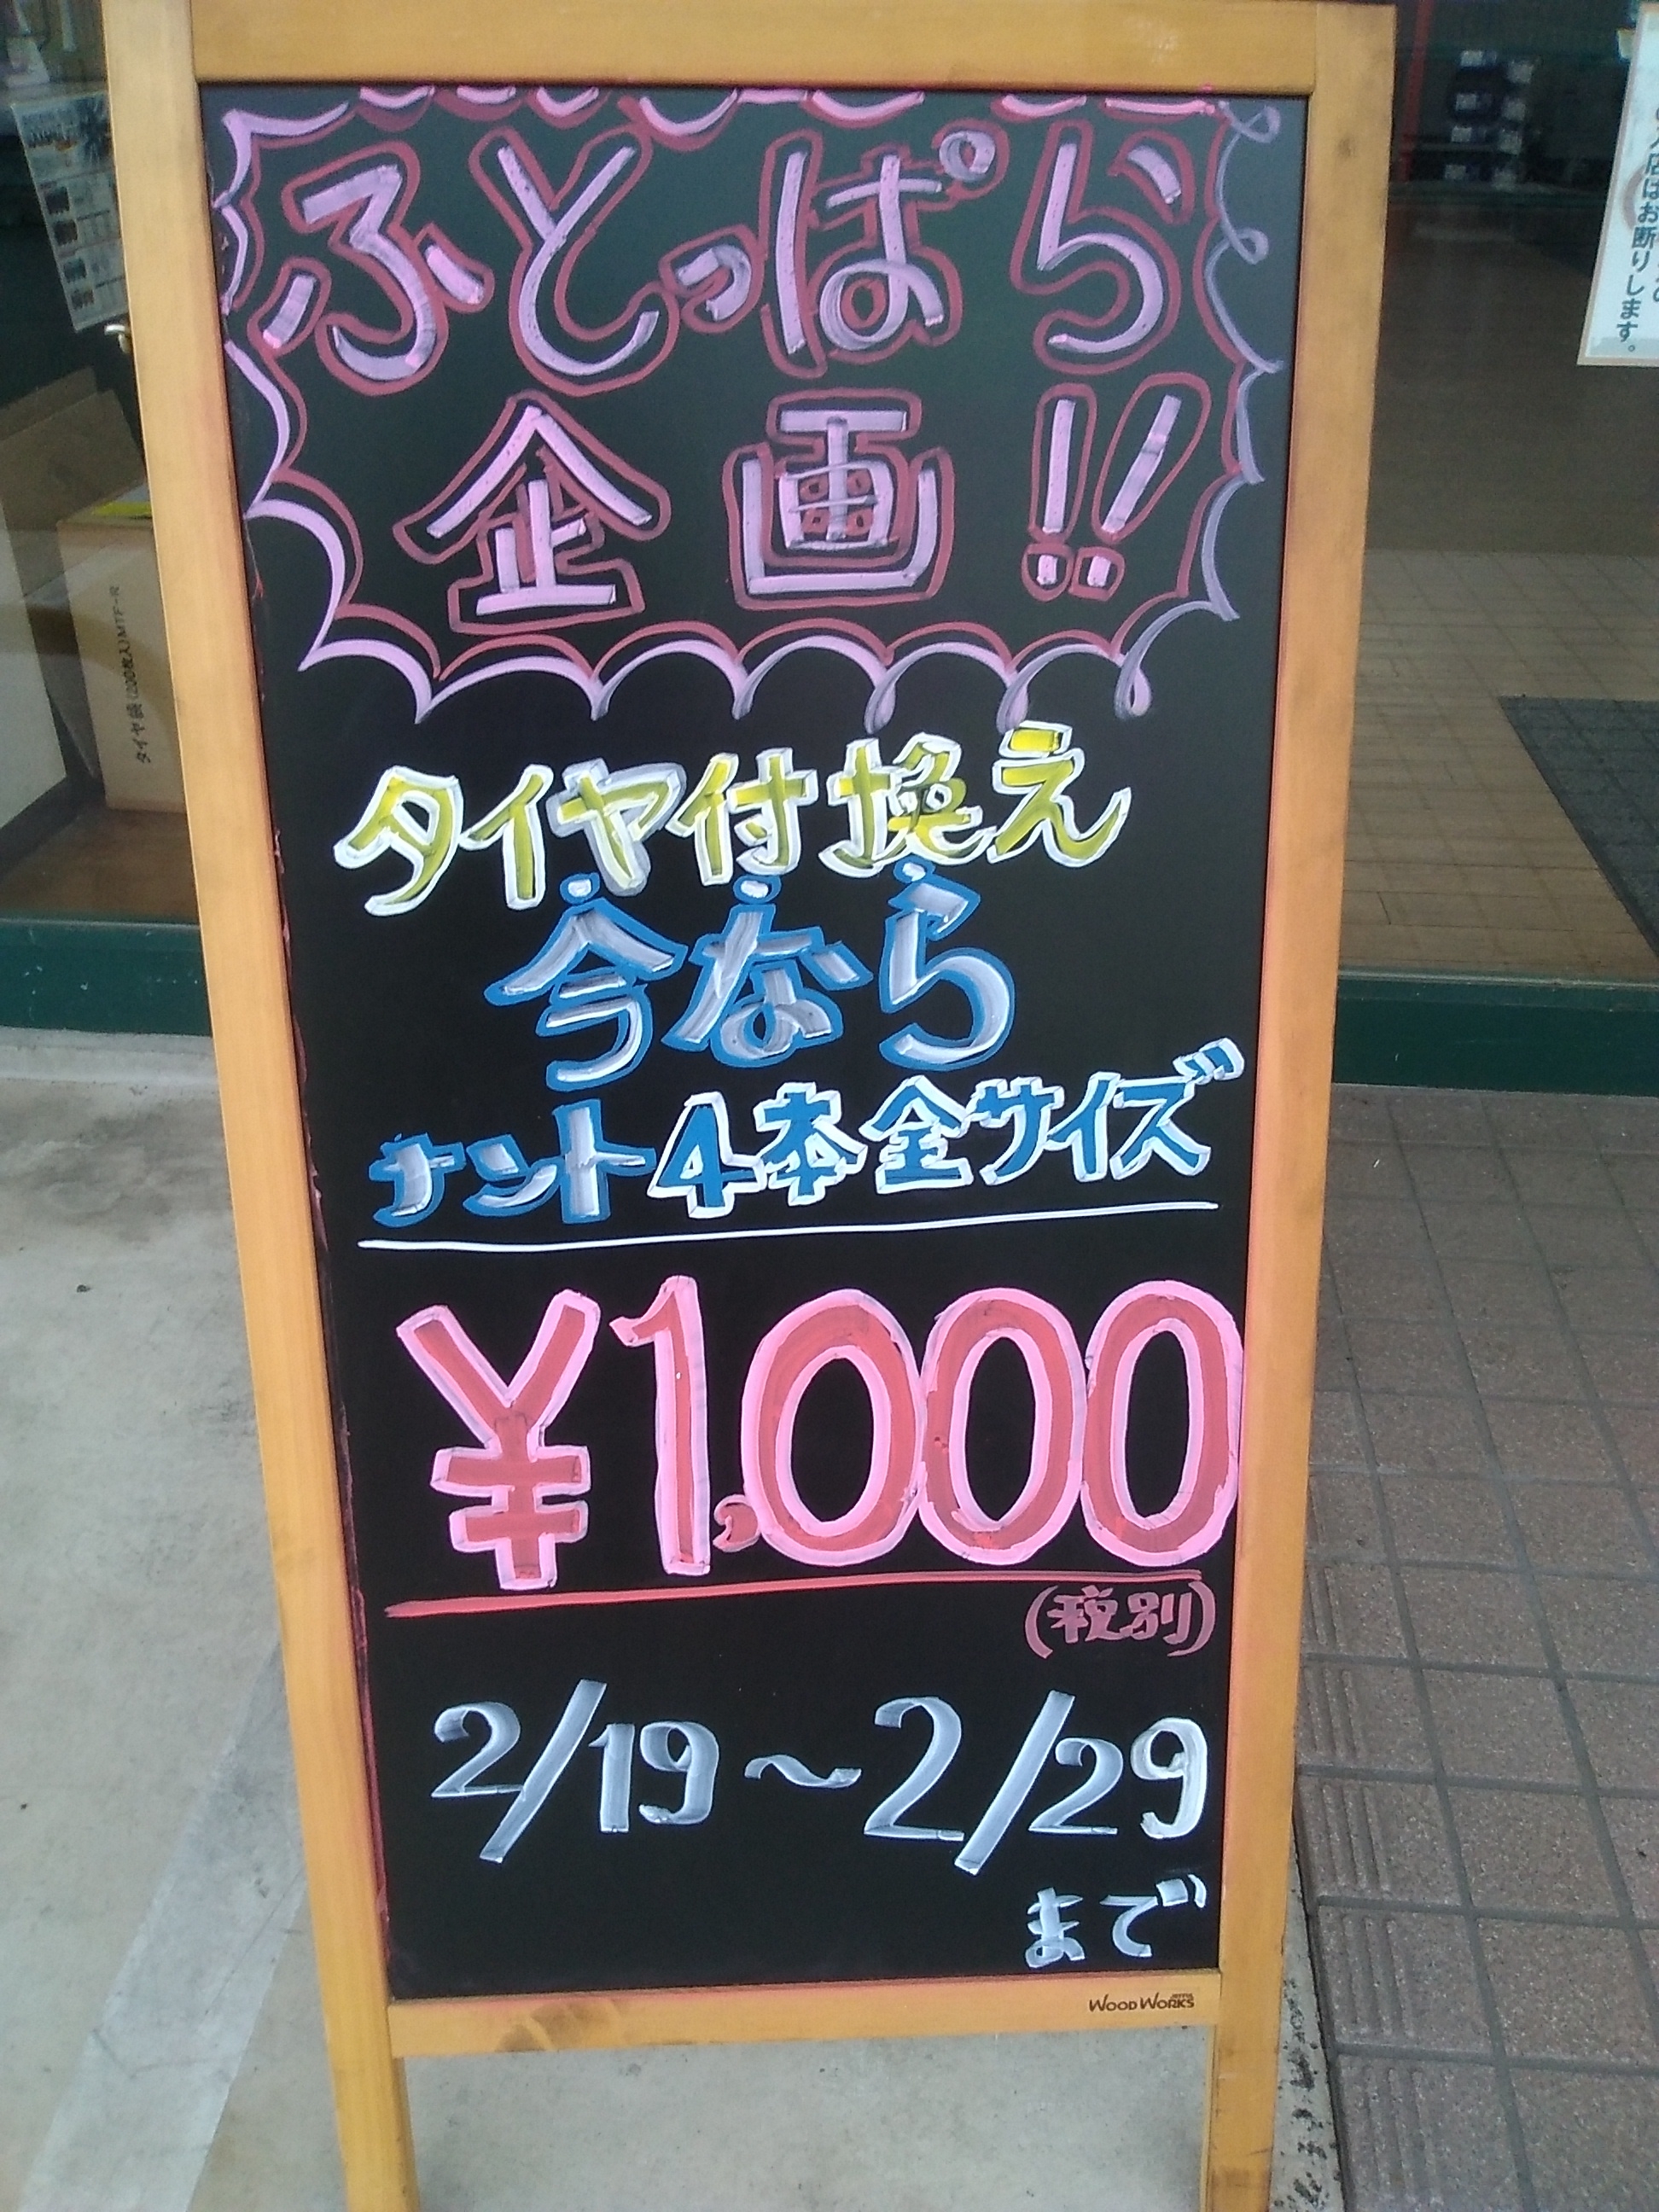 ふとっぱら
企画!!
タイヤ付換え
今なら
ナント4本全サイズ
¥1,000
(税別)
2/19〜2/29
まで
WOOD WORKS
タイヤ袋(200枚入)MTF-R
店はお断りします。